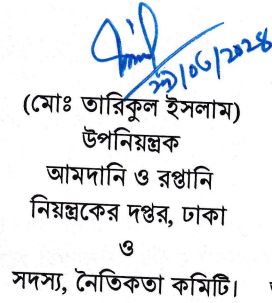 ২১/০৬/২০২৪
(মোঃ তারিকুল ইসলাম)
উপনিয়ন্ত্রক
আমদানি ও রপ্তানি
নিয়ন্ত্রকের দপ্তর, ঢাকা
ও
সদস্য, নৈতিকতা কমিটি।